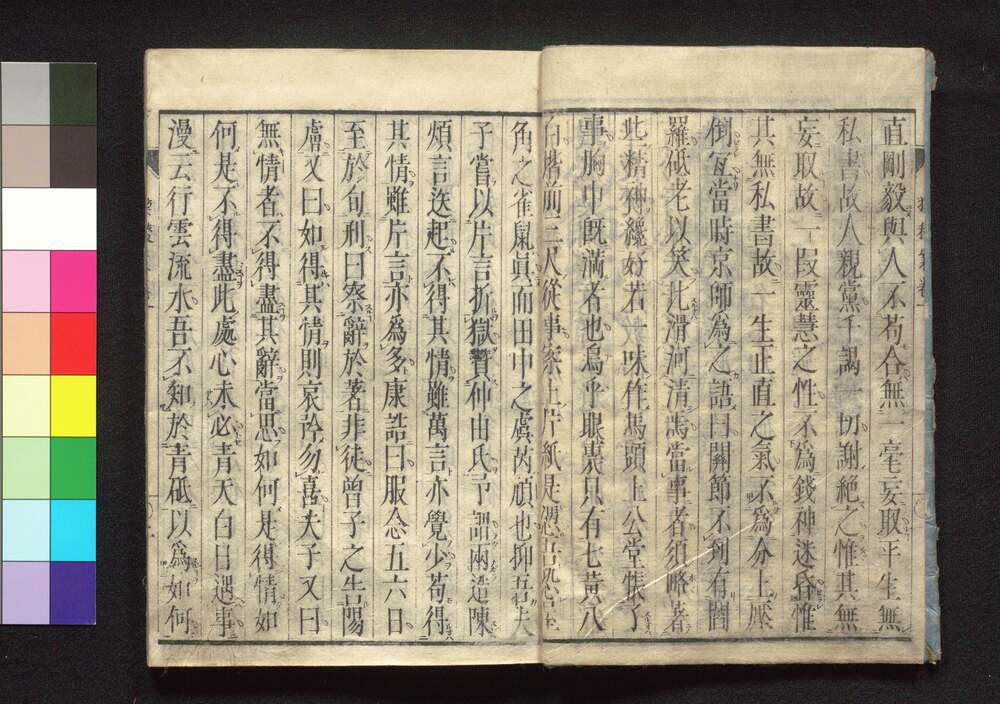 直剛毅與人不苟合無一毫妄取平生無
私書故人親黨干謁一切謝絶之惟其無
妄取故一段靈慧之性不爲錢神迷昏惟
其無私書故一生正直之氣不爲分上壓
倒宜當時京師爲之語曰關節不到有閻
羅砥老以笑比滑河清爲當事者須略著
此精神纔好若一味作馬頭上公堂悵了
事胸中既滿者也烏乎眼裏只有七黃八
白堦前二人從事案上片紙是
角之雀鼠眞而田中之虞芮頑也抑吾夫
子嘗以片言折獄贊仲由氏予謂兩造陳
煩言迭起不得其情雖萬言亦覺少苟得
其情雖片言亦爲多康誥曰服念五六日
至於旬刑曰察辭於著非徒曾子之告陽
膚又曰如得其情則哀矜勿喜夫子又曰
無情者不得盡其辭當思如何是得情如
何是不得盡此處心未必青天白日遇事
漫云行雲流水吾不知於青砥以爲如何